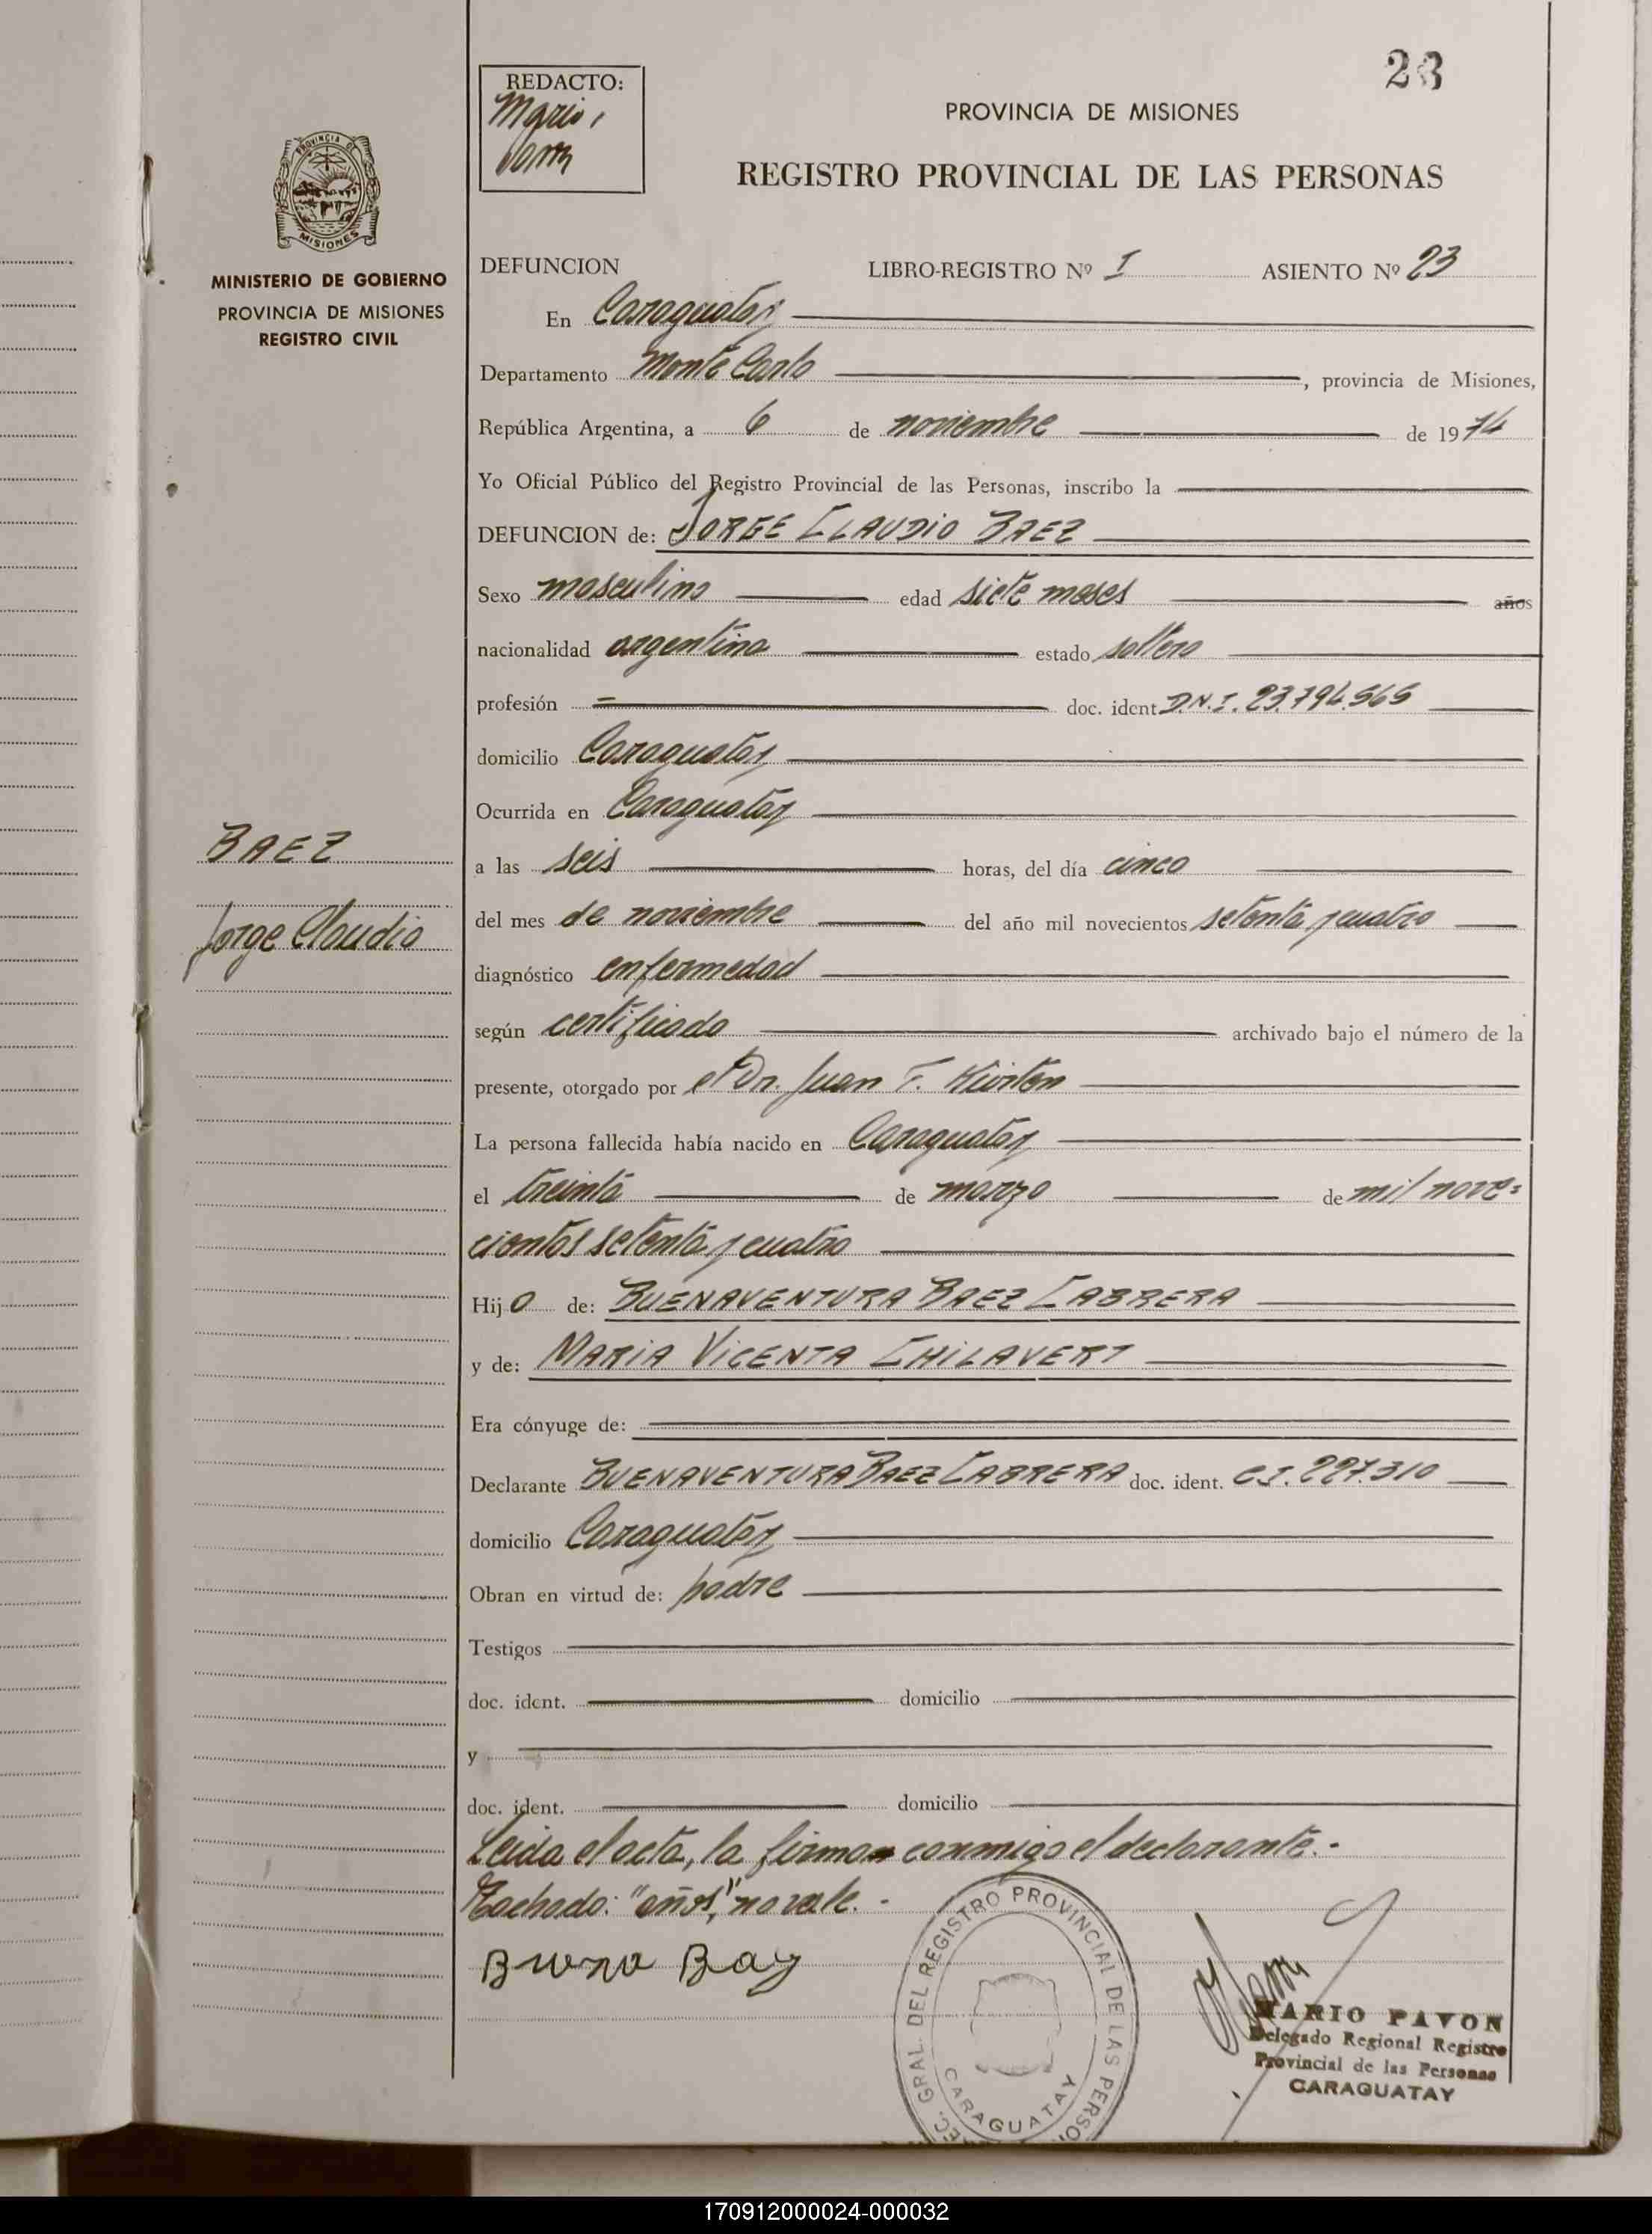 23
REDACTO:
Mario
PROVINCIA DE MISIONES
REGISTRO PROVINCIAL DE LAS PERSONAS
PROVINCIA DE
MISIONES
MINISTERIO DE GOBIERNO
PROVINCIA DE MISIONES
REGISTRO CIVIL
DEFUNCION LIBRO-REGISTRO Nº I ASIENTO Nº 23
En Caraguatay
Departamento Monte Carlo, provincia de Misiones,
República Argentina, a 6 de noviembre de 1974
Yo Oficial Público del Registro Provincial de las Personas, inscribo la
DEFUNCION de: JORGE CLAUDIO BAEZ
Sexo masculino edad siete meses años
nacionalidad argentina estado soltero
profesión = doc. ident. D.N.I. 23.794.565
domicilio Caraguatay
Ocurrida en Caraguatay
BAEZ
Jorge Claudio
a las seis horas, del día cinco
del mes de noviembre del año mil novecientos setenta y cuatro
diagnóstico enfermedad
según certificado archivado bajo el número de la
presente, otorgado por el Dr. Juan F.
La persona fallecida había nacido en Caraguatay
el treinta de marzo de mil nove=
cientos setenta y cuatro
Hijo de: BUENAVENTURA BAEZ CABRERA
y de: MARIA VICENTA CHILAVERT
Era cónyuge de:
Declarante BUENAVENTURA BAEZ CABRERA doc. ident. C.I. 227.310
domicilio Caraguatay
Obran en virtud de: padre
Testigos
doc. ident. domicilio
y
doc. ident. domicilio
Leida el acta, la firman conmigo el declarante.-
Tachado: "años," no vale.-
GRAL. DEL REGISTRO PROVINCIAL DE LAS
CARAGUATAY
MARIO PAVON
Delegado Regional Registro
Provincial de las Personas
CARAGUATAY
170912000024-000032